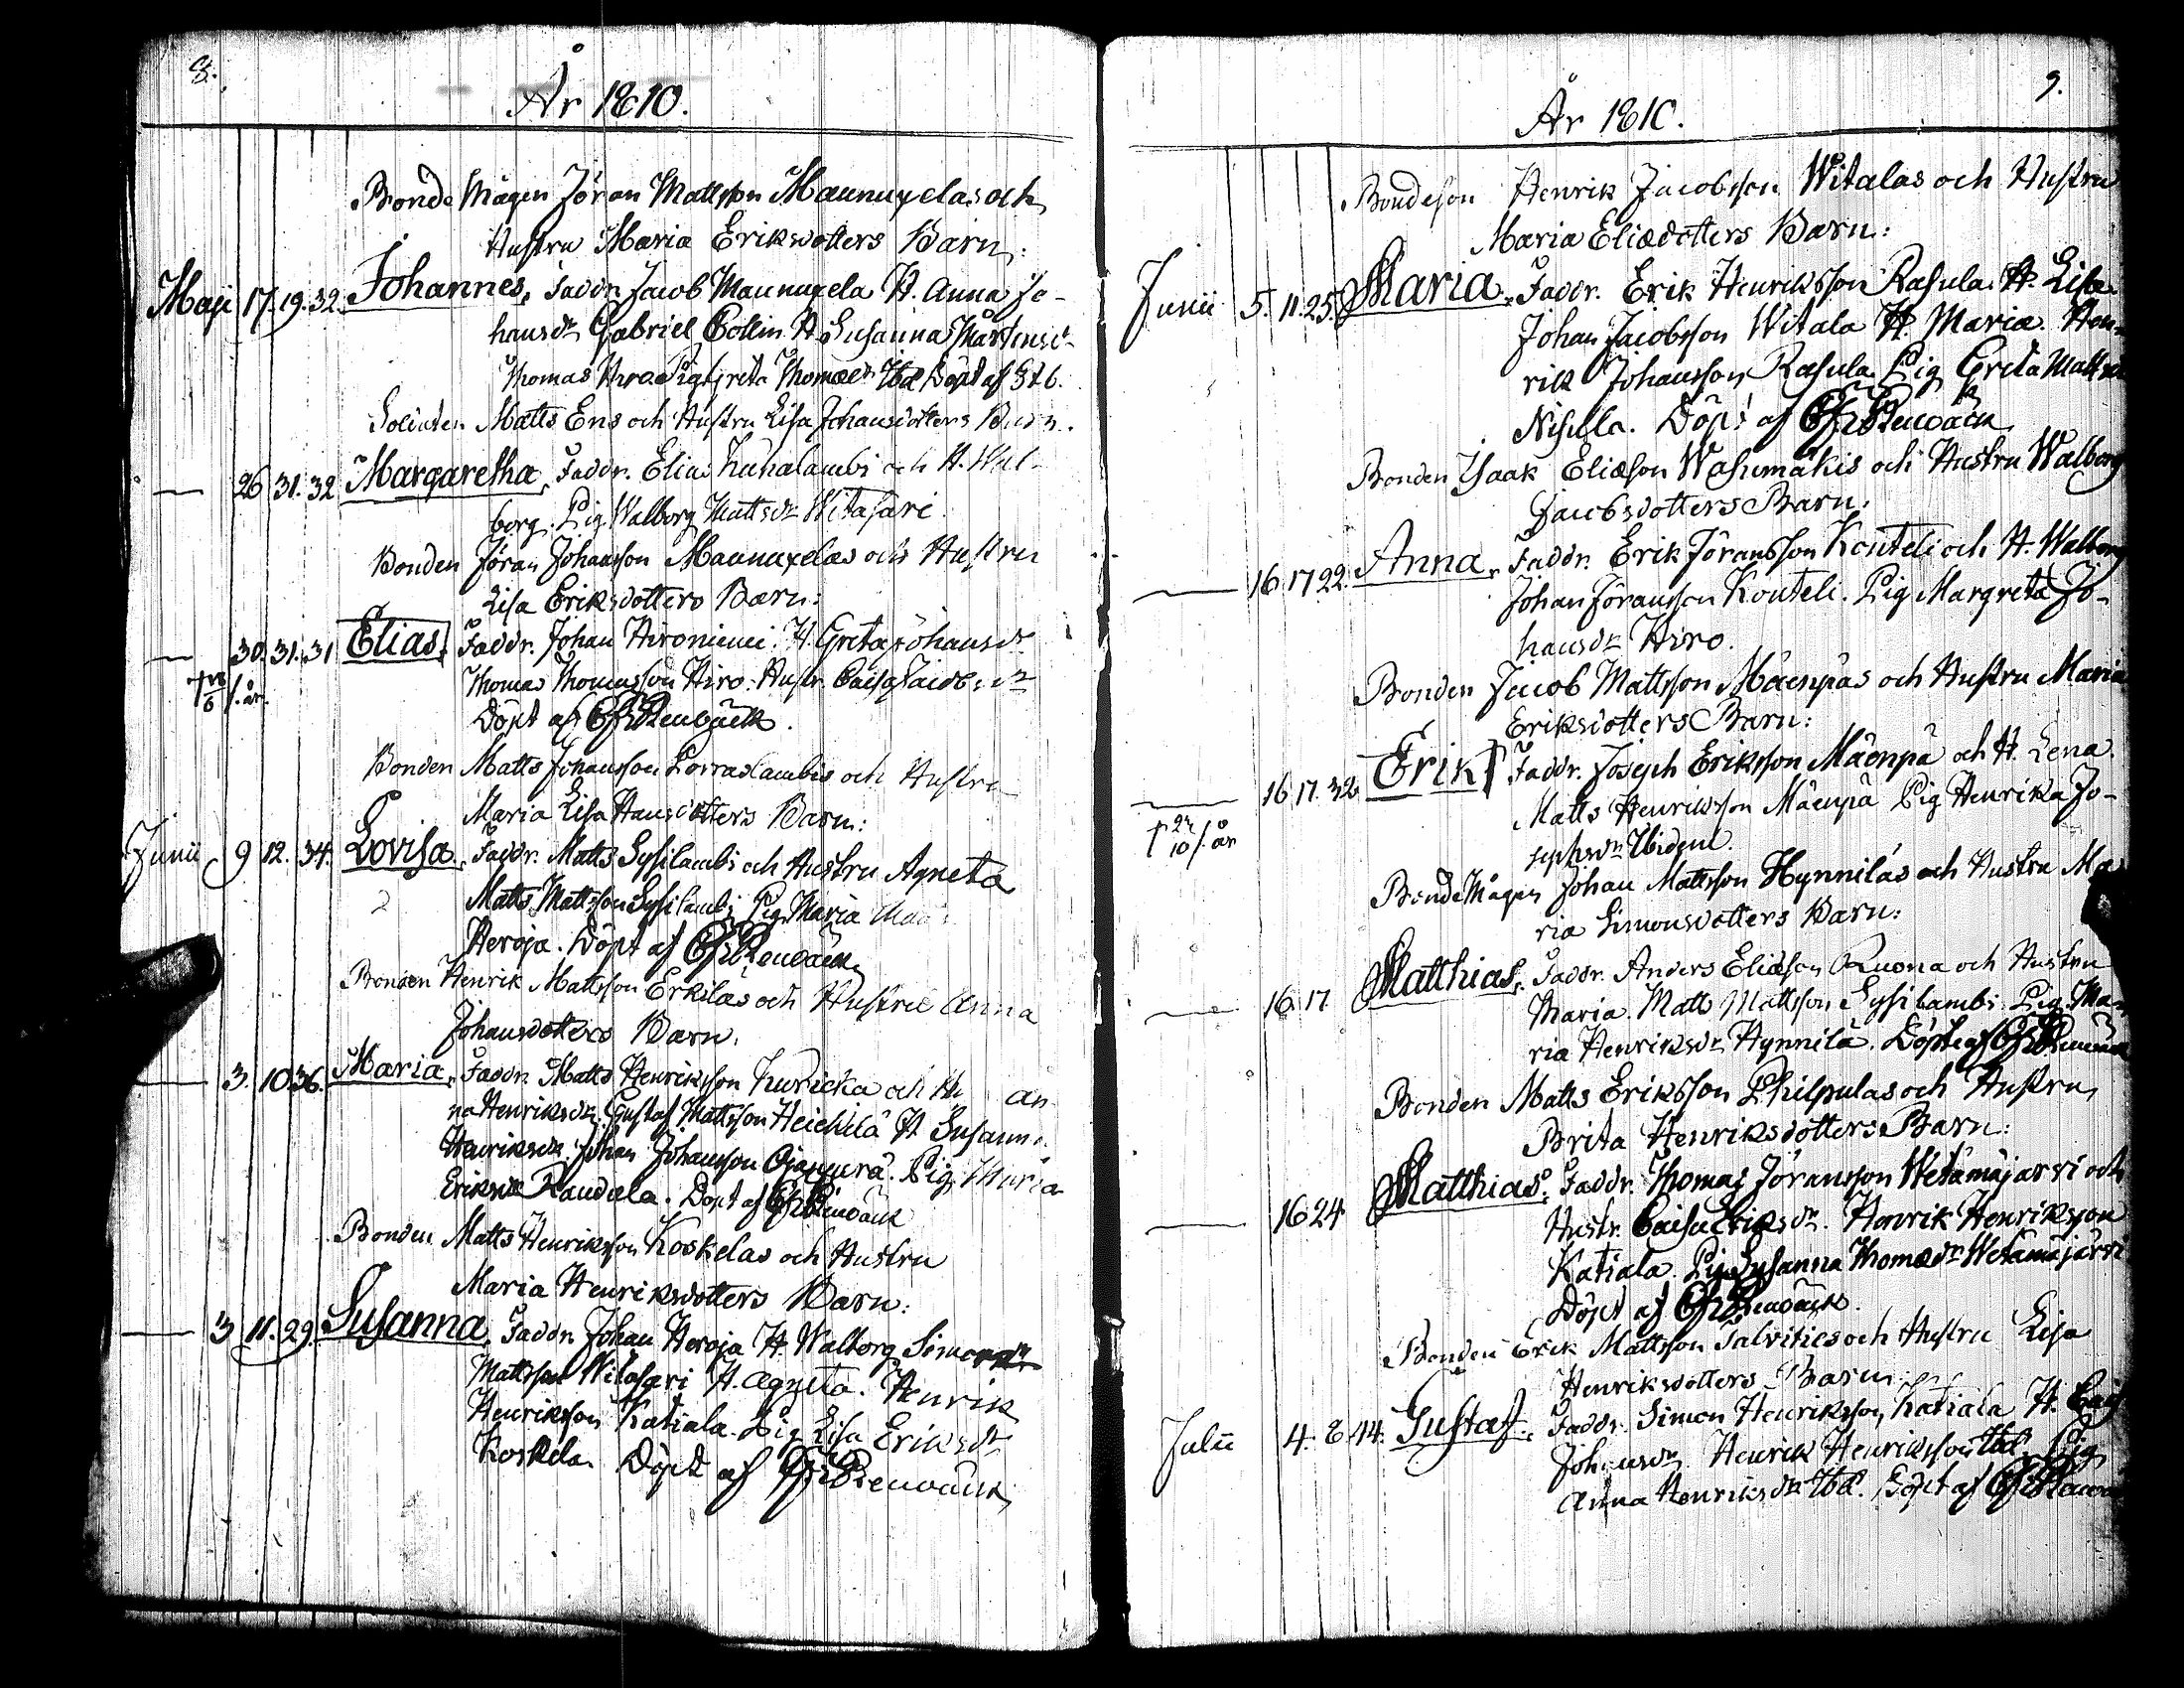 8.
År 1810.
Bonde Mågen Jöran Mattsson Maunuxelas och
Hustru Maria Eriksdotters Barn:
Maji 17. 19. 32. Johannes, Faddr. Jacob Maunuxela H. Anna Jo-
hansdr Gabriel Collin H. Susanna Mårtensdr
Thomas Pig Greta Thomædr Ibd Döpt af
Soldaten Matts Ens och Hustru Lisa Johansdotters Barn.
— 26 31. 32 Margaretha, Faddr. Elias Kuhalambi och H. Wal-
borg. Pig Walborg Mattsdr Witasari.
Bonden Jöran Johansson Maunuxelas och Hustru
Lisa Eriksdotters Barn:
— 30. 31. 31 Elias, Faddr. Johan Hironiemi. H. Greta Johansdr
† 18/6 s. år. Thomas Thomasson Hiro. Hustr. Caisa Jacobsdr
Döpt af Renbäck.
Bonden Matts Johansson Lorraslambis och Hustru
Maria Lisa Hansdotters Barn:
Junii 9 12. 34. Lovisa, Faddr. Matts Sysilambi och Hustru Agneta
Matts Mattsson Sysilambi Pig Maria
Heroja. Döpt af Renbäck
Bonden Henrik Mattsson Erkiläs och Hustru Anna
Johansdotters Barn.
— 3. 10 36. Maria, Faddr. Matts Henriksson Kuricka och Hu An-
na Henriksdr. Gustaf Mattsson Heickilä H. Susanna
Henriksdr. Johan Johansson Ojanperä. Pig. Maria
Eriksdr Raudala. Döpt af Renbäck
Bonden Matts Henriksson Koskelas och Hustru
Maria Henriksdotters Barn:
— 3 11. 29. Susanna, Faddr. Johan Heroja H. Walborg Simonsdr
Mattsson Witasari H. Agneta. Henrik
Henriksson Katiala. Pig Lisa Eriksdr
Koskela. Döpt af Renbäck
9.
År 1810.
Bondeson Henrik Jacobsson Witalas och Hustru
Maria Eliædotters Barn:
Junii 5. 11. 25. Maria, Faddr. Erik Henriksson Rasula. H. Lisa
Johan Jacobsson Witala H. Maria. Hen-
rik Johansson Rasula Pig Greta Mattsdr
Nisula. Döpt af Renbäck
Bonden Isaak Eliæson Wasumäkis och Hustru Walborg
Jacobsdotters Barn:
— 16 17 22. Anna, Faddr. Erik Jöransson Kouteli och H. Walborg
Johan Jöransson Kouteli. Pig Margreta Jo-
hansdr Hiro.
Bonden Jacob Mattsson Mäenpäs och Hustru Maria
Eriksdotters Barn:
— 16 17. 32. Erik, Faddr. Joseph Eriksson Mäenpä och H. Lena.
† 27/10 s. år Matts Henriksson Mäenpä Pig Henrika Jo-
sephsdr Ibidem.
Bonde Mågen Johan Mattsson Hynniläs och Hustru Ma-
ria Simonsdotters Barn:
— 16. 17 Matthias, Faddr. Anders Eliæson Ruona och Hustru
Maria. Matts Mattsson Sysilambi. Pig. Ma-
ria Henriksdr Hynnilä. Döpt af Renbäck
Bonden Matts Eriksson Philpulas och Hustru
Brita Henriksdotters Barn:
— 16 24 Matthias, Faddr. Thomas Jöransson Wetämäjärvi och
Hustr. Caisa Eriksdr. Henrik Henriksson
Katiala. Pig Susanna Thomædr Wetämäjärvi
Döpt af Renbäck.
Bonden Erik Mattsson Salvities och Hustru Lisa
Henriksdotters Barn
Julii 4. 8. 44. Gustaf, Faddr. Simon Henriksson Katiala H. Caisa
Johansdr Henrik Henriksson Ibd Pig
Anna Henriksdr Ibd. Döpt af